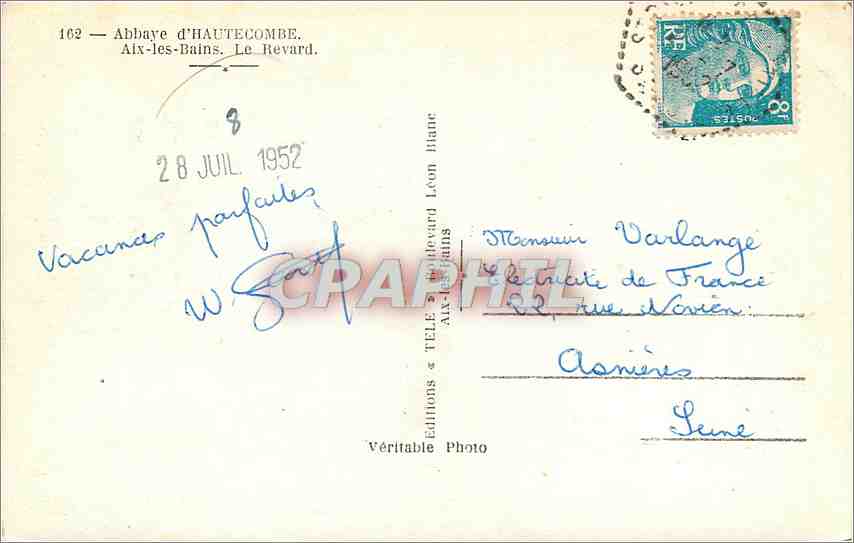 162 — Abbaye d'HAUTECOMBE.
Aix-les-Bains. Le Revard.
8
28 JUIL. 1952
Vacances parfaites
W.
Editions « TELE » Boulevard Léon Blanc
Aix-les-Bains
Véritable Photo
RF
8F
POSTES
Monsieur Varlange
Electricite de France
22, rue Novion
Asnières
Seine
CPAPHIL